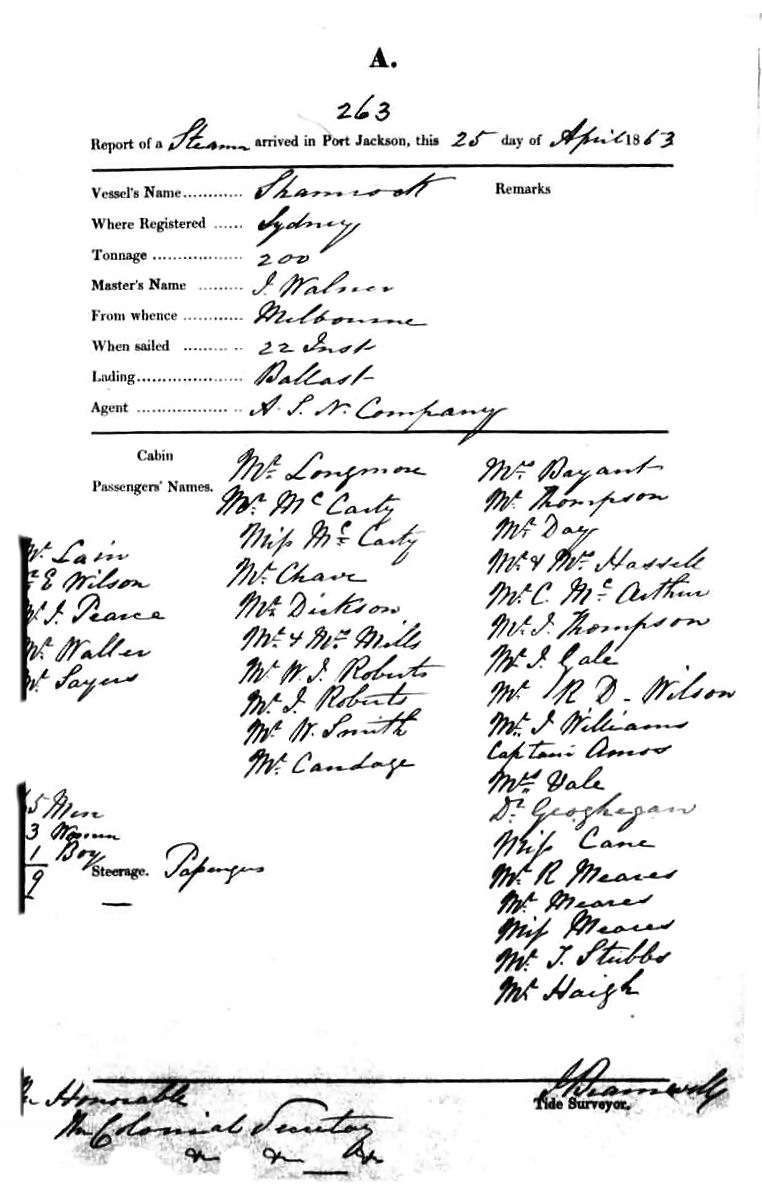 A.
263
Report of a Steamer arrived in Port Jackson, this 25 day of April 1863
Vessel's Name............ Shamrock Remarks
Where Registered ...... Sydney
Tonnage .................. 200
Master's Name ......... J. Walner
From whence ............ Melbourne
When sailed .......... .. 22 Inst
Lading..................... Ballast
Agent ................ .. A. S. N. Company
Cabin
Passengers' Names.
Mr. Lain
E Wilson
Mr. J. Pearce
Mr. Waller
Mr. Sayers
Mr. Longmore
Mc Carty
Miss Mc Carty
Mr. Chave
Dickson
Mr. & Mrs. Mills
Mr. W. J. Roberts
Mr. J. Roberts
Mr. W. Smith
Mr. Candage
Mrs. Bayant
Mr. Thompson
Mr. Day
Mr. & Mrs. Hassell
Mr. C. Mc Arthur
Mr. J. Thompson
Mr. J. Gale
Mr. R D. Wilson
Mr. J Williams
Captain Amos
Mrs. Vale
Dr. Geoghegan
Miss Cane
Mr. R Meares
Mr. Meares
Miss Meares
Mr. T. Stubbs
Mr. Haigh
5 Men
3 Women
1 Boy
9
Steerage. Passengers
The Honorable
The Colonial Secretary
& & &
Tide Surveyor.